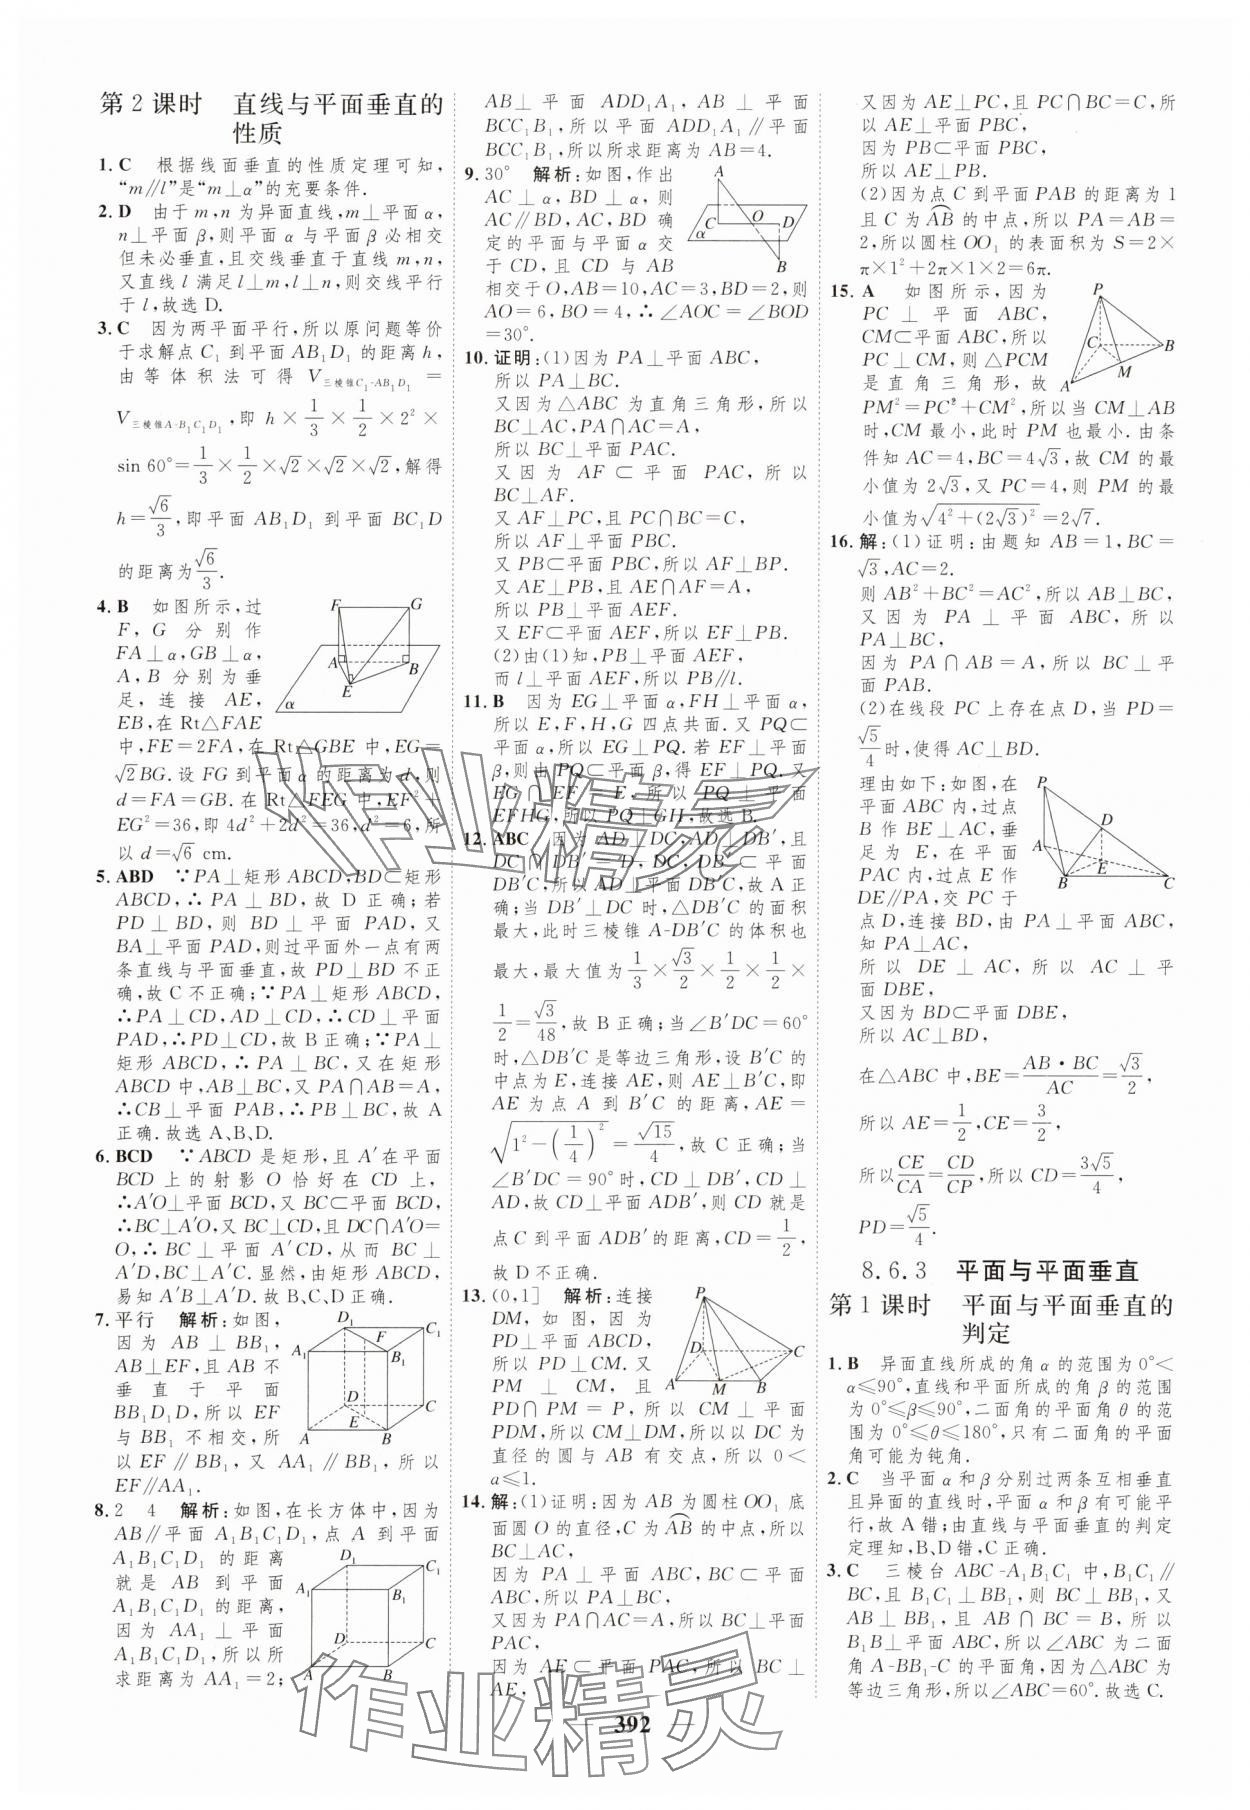 第 2 课时　直线与平面垂直的
性质
1. C　根据线面垂直的性质定理可知,
“m∥l”是“m⊥α”的充要条件.
2. D　由于 m,n 为异面直线,m⊥平面 α,
n⊥平面 β,则平面 α 与平面 β 必相交
但未必垂直,且交线垂直于直线 m,n,
又直线 l 满足 l⊥m,l⊥n,则交线平行
于 l,故选 D.
3. C　因为两平面平行,所以原问题等价
于求解点 C₁ 到平面 AB₁D₁ 的距离 h,
由等体积法可得 V三棱锥C₁-AB₁D₁ =
V三棱锥A-B₁C₁D₁,即 h × 1/3 × 1/2 × 2² ×
sin 60°=1/3×1/2×√2×√2×√2,解得
h=√6/3,即平面 AB₁D₁ 到平面 BC₁D
的距离为√6/3.
4. B　如图所示,过
F, G 分别作
FA⊥α,GB⊥α,
A,B 分别为垂
足,连接 AE,
EB,在 Rt△FAE
中,FE=2FA,在 Rt△GBE 中,EG=
√2BG.设 FG 到平面 α 的距离为 d,则
d=FA=GB.在 Rt△FEG 中,EF²+
EG²=36,即 4d²+2d²=36,d²=6,所
以 d=√6 cm.
5. ABD　∵PA⊥矩形 ABCD,BD⊂矩形
ABCD,∴PA⊥BD,故 D 正确;若
PD⊥BD,则 BD⊥平面 PAD,又
BA⊥平面 PAD,则过平面外一点有两
条直线与平面垂直,故 PD⊥BD 不正
确,故 C 不正确;∵PA⊥矩形 ABCD,
∴PA⊥CD,AD⊥CD,∴CD⊥平面
PAD,∴PD⊥CD,故 B 正确;∵PA⊥
矩形 ABCD,∴PA⊥BC,又在矩形
ABCD 中,AB⊥BC,又 PA∩AB=A,
∴CB⊥平面 PAB,∴PB⊥BC,故 A
正确.故选 A、B、D.
6. BCD　∵ABCD 是矩形,且 A′在平面
BCD 上的射影 O 恰好在 CD 上,
∴A′O⊥平面 BCD,又 BC⊂平面 BCD,
∴BC⊥A′O,又 BC⊥CD,且 DC∩A′O=
O,∴BC⊥平面 A′CD,从而 BC⊥
A′D,BC⊥A′C.显然,由矩形 ABCD,
易知 A′B⊥A′D.故 B、C、D 正确.
7. 平行　解析:如图,
因为 AB⊥BB₁,
AB⊥EF,且 AB 不
垂直于平面
BB₁D₁D,所以 EF
与 BB₁ 不相交,所
以 EF∥BB₁,又 AA₁∥BB₁,所以
EF∥AA₁.
8. 2　4　解析:如图,在长方体中,因为
AB∥平面 A₁B₁C₁D₁,点 A 到平面
A₁B₁C₁D₁ 的距离
就是 AB 到平面
A₁B₁C₁D₁ 的距离,
因为 AA₁⊥平面
A₁B₁C₁D₁,所以所
求距离为 AA₁=2;
AB⊥平面 ADD₁A₁,AB⊥平面
BCC₁B₁,所以平面 ADD₁A₁∥平面
BCC₁B₁,所以所求距离为 AB=4.
9. 30°　解析:如图,作出
AC⊥α,BD⊥α,则
AC∥BD,AC,BD 确
定的平面与平面 α 交
于 CD,且 CD 与 AB
相交于 O,AB=10,AC=3,BD=2,则
AO=6,BO=4,∴∠AOC=∠BOD
=30°.
10. 证明:(1)因为 PA⊥平面 ABC,
所以 PA⊥BC.
又因为△ABC 为直角三角形,所以
BC⊥AC,PA∩AC=A,
所以 BC⊥平面 PAC.
又因为 AF⊂平面 PAC,所以
BC⊥AF.
又 AF⊥PC,且 PC∩BC=C,
所以 AF⊥平面 PBC.
又 PB⊂平面 PBC,所以 AF⊥BP.
又 AE⊥PB,且 AE∩AF=A,
所以 PB⊥平面 AEF.
又 EF⊂平面 AEF,所以 EF⊥PB.
(2)由(1)知,PB⊥平面 AEF,
而 l⊥平面 AEF,所以 PB∥l.
11. B　因为 EG⊥平面 α,FH⊥平面 α,
所以 E,F,H,G 四点共面.又 PQ⊂
平面 α,所以 EG⊥PQ.若 EF⊥平面
β,则由 PQ⊂平面 β,得 EF⊥PQ.又
EG∩EF=E,所以 PQ⊥平面
EFHG,所以 PQ⊥GH,故选 B.
12. ABC　因为 AD⊥DC,AD⊥DB′,且
DC∩DB′=D,DC,DB′⊂平面
DB′C,所以 AD⊥平面 DB′C,故 A 正
确;当 DB′⊥DC 时,△DB′C 的面积
最大,此时三棱锥 A-DB′C 的体积也
最大,最大值为 1/3×√3/2×1/2×1/2×
1/2=√3/48,故 B 正确;当∠B′DC=60°
时,△DB′C 是等边三角形,设 B′C 的
中点为 E,连接 AE,则 AE⊥B′C,即
AE 为点 A 到 B′C 的距离,AE=
√(1²-(1/4)²)=√15/4,故 C 正确;当
∠B′DC=90°时,CD⊥DB′,CD⊥
AD,故 CD⊥平面 ADB′,则 CD 就是
点 C 到平面 ADB′的距离,CD=1/2,
故 D 不正确.
13. (0,1]　解析:连接
DM,如图,因为
PD⊥平面 ABCD,
所以 PD⊥CM.又
PM⊥CM,且
PD∩PM=P,所以 CM⊥平面
PDM,所以 CM⊥DM,所以以 DC 为
直径的圆与 AB 有交点,所以 0<
a≤1.
14. 解:(1)证明:因为 AB 为圆柱 OO₁ 底
面圆 O 的直径,C 为 A͡B 的中点,所以
BC⊥AC,
因为 PA⊥平面 ABC,BC⊂平面
ABC,所以 PA⊥BC,
又因为 PA∩AC=A,所以 BC⊥平面
PAC,
因为 AE⊂平面 PAC,所以 BC⊥
AE,
又因为 AE⊥PC,且 PC∩BC=C,所
以 AE⊥平面 PBC,
因为 PB⊂平面 PBC,
所以 AE⊥PB.
(2)因为点 C 到平面 PAB 的距离为 1
且 C 为 A͡B 的中点,所以 PA=AB=
2,所以圆柱 OO₁ 的表面积为 S=2×
π×1²+2π×1×2=6π.
15. A　如图所示,因为
PC⊥平面 ABC,
CM⊂平面 ABC,所以
PC⊥CM,则△PCM
是直角三角形,故
PM²=PC²+CM²,所以当 CM⊥AB
时,CM 最小,此时 PM 也最小.由条
件知 AC=4,BC=4√3,故 CM 的最
小值为 2√3,又 PC=4,则 PM 的最
小值为√(4²+(2√3)²)=2√7.
16. 解:(1)证明:由题知 AB=1,BC=
√3,AC=2.
则 AB²+BC²=AC²,所以 AB⊥BC,
又因为 PA⊥平面 ABC,所以
PA⊥BC,
因为 PA∩AB=A,所以 BC⊥平
面 PAB.
(2)在线段 PC 上存在点 D,当 PD=
√5/4时,使得 AC⊥BD.
理由如下:如图,在
平面 ABC 内,过点
B 作 BE⊥AC,垂
足为 E,在平面
PAC 内,过点 E 作
DE∥PA,交 PC 于
点 D,连接 BD,由 PA⊥平面 ABC,
知 PA⊥AC,
所以 DE⊥AC,所以 AC⊥平
面 DBE,
又因为 BD⊂平面 DBE,
所以 AC⊥BD,
在△ABC 中,BE=AB·BC/AC=√3/2,
所以 AE=1/2,CE=3/2,
所以CE/CA=CD/CP,所以 CD=3√5/4,
PD=√5/4.
8.6.3　平面与平面垂直
第 1 课时　平面与平面垂直的
判定
1. B　异面直线所成的角 α 的范围为 0°<
α≤90°,直线和平面所成的角 β 的范围
为 0°≤β≤90°,二面角的平面角 θ 的范
围为 0°≤θ≤180°,只有二面角的平面
角可能为钝角.
2. C　当平面 α 和 β 分别过两条互相垂直
且异面的直线时,平面 α 和 β 有可能平
行,故 A 错;由直线与平面垂直的判定
定理知,B、D 错,C 正确.
3. C　三棱台 ABC-A₁B₁C₁ 中,B₁C₁∥
BC,且 B₁C₁⊥BB₁,则 BC⊥BB₁,又
AB⊥BB₁,且 AB∩BC=B,所以
B₁B⊥平面 ABC,所以∠ABC 为二面
角 A-BB₁-C 的平面角,因为△ABC 为
等边三角形,所以∠ABC=60°.故选 C.
392
作业精灵
作业精灵